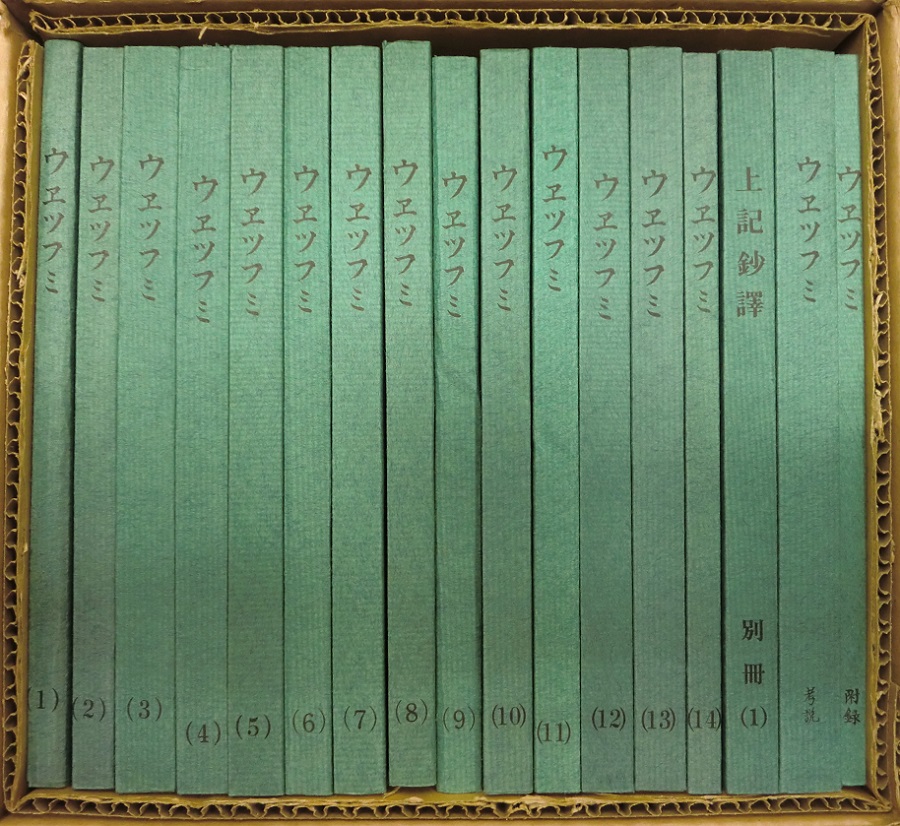 ウヱツフミ
(1)
ウヱツフミ
(2)
ウヱツフミ
(3)
ウヱツフミ
(4)
ウヱツフミ
(5)
ウヱツフミ
(6)
ウヱツフミ
(7)
ウヱツフミ
(8)
ウヱツフミ
(9)
ウヱツフミ
(10)
ウヱツフミ
(11)
ウヱツフミ
(12)
ウヱツフミ
(13)
ウヱツフミ
(14)
上記鈔譯
別冊
(1)
ウヱツフミ
考説
ウヱツフミ
附録